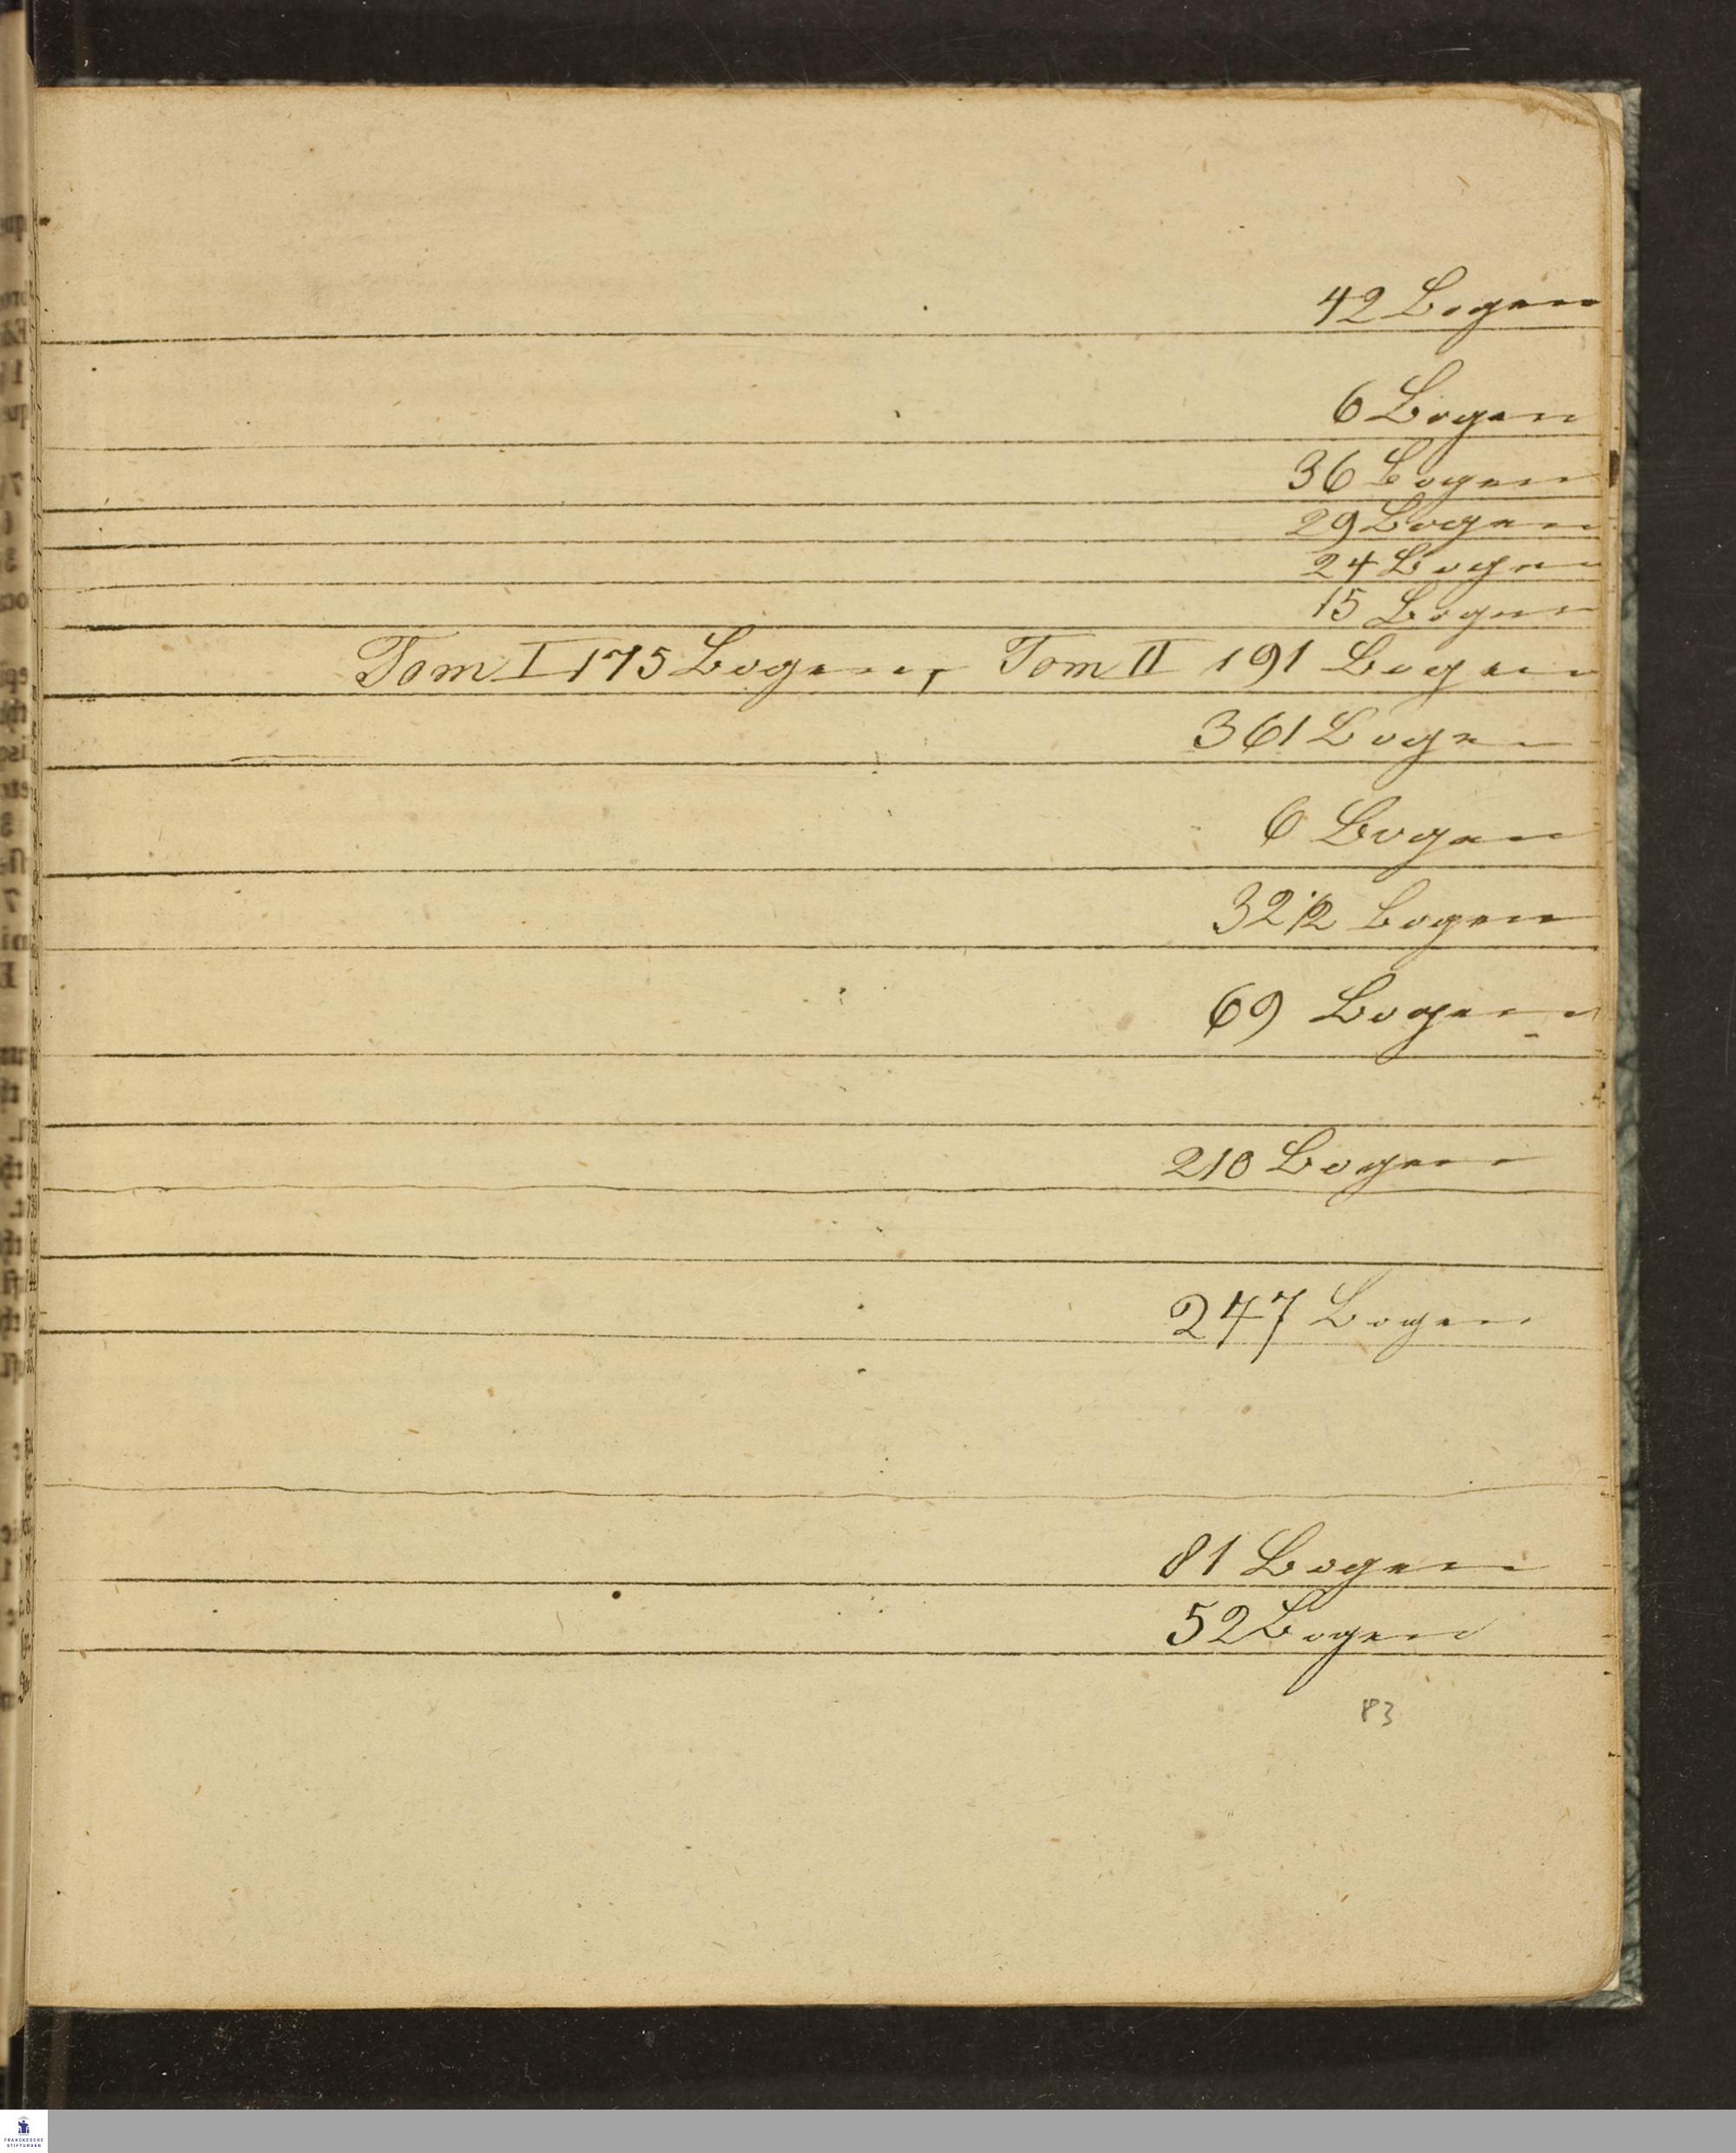 42 Bogen
6 Bogen
36 Bogen
29 Bogen
24 Bogen
15 Bogen
Tom I 175 Bogen, Tom II 191 Bogen
361 Bogen
6 Bogen
32 1/2 Bogen
69 Bogen
210 Bogen
247 Bogen
81 Bogen
52 Bogen
83
FRANCKESCHE
STIFTUNGEN